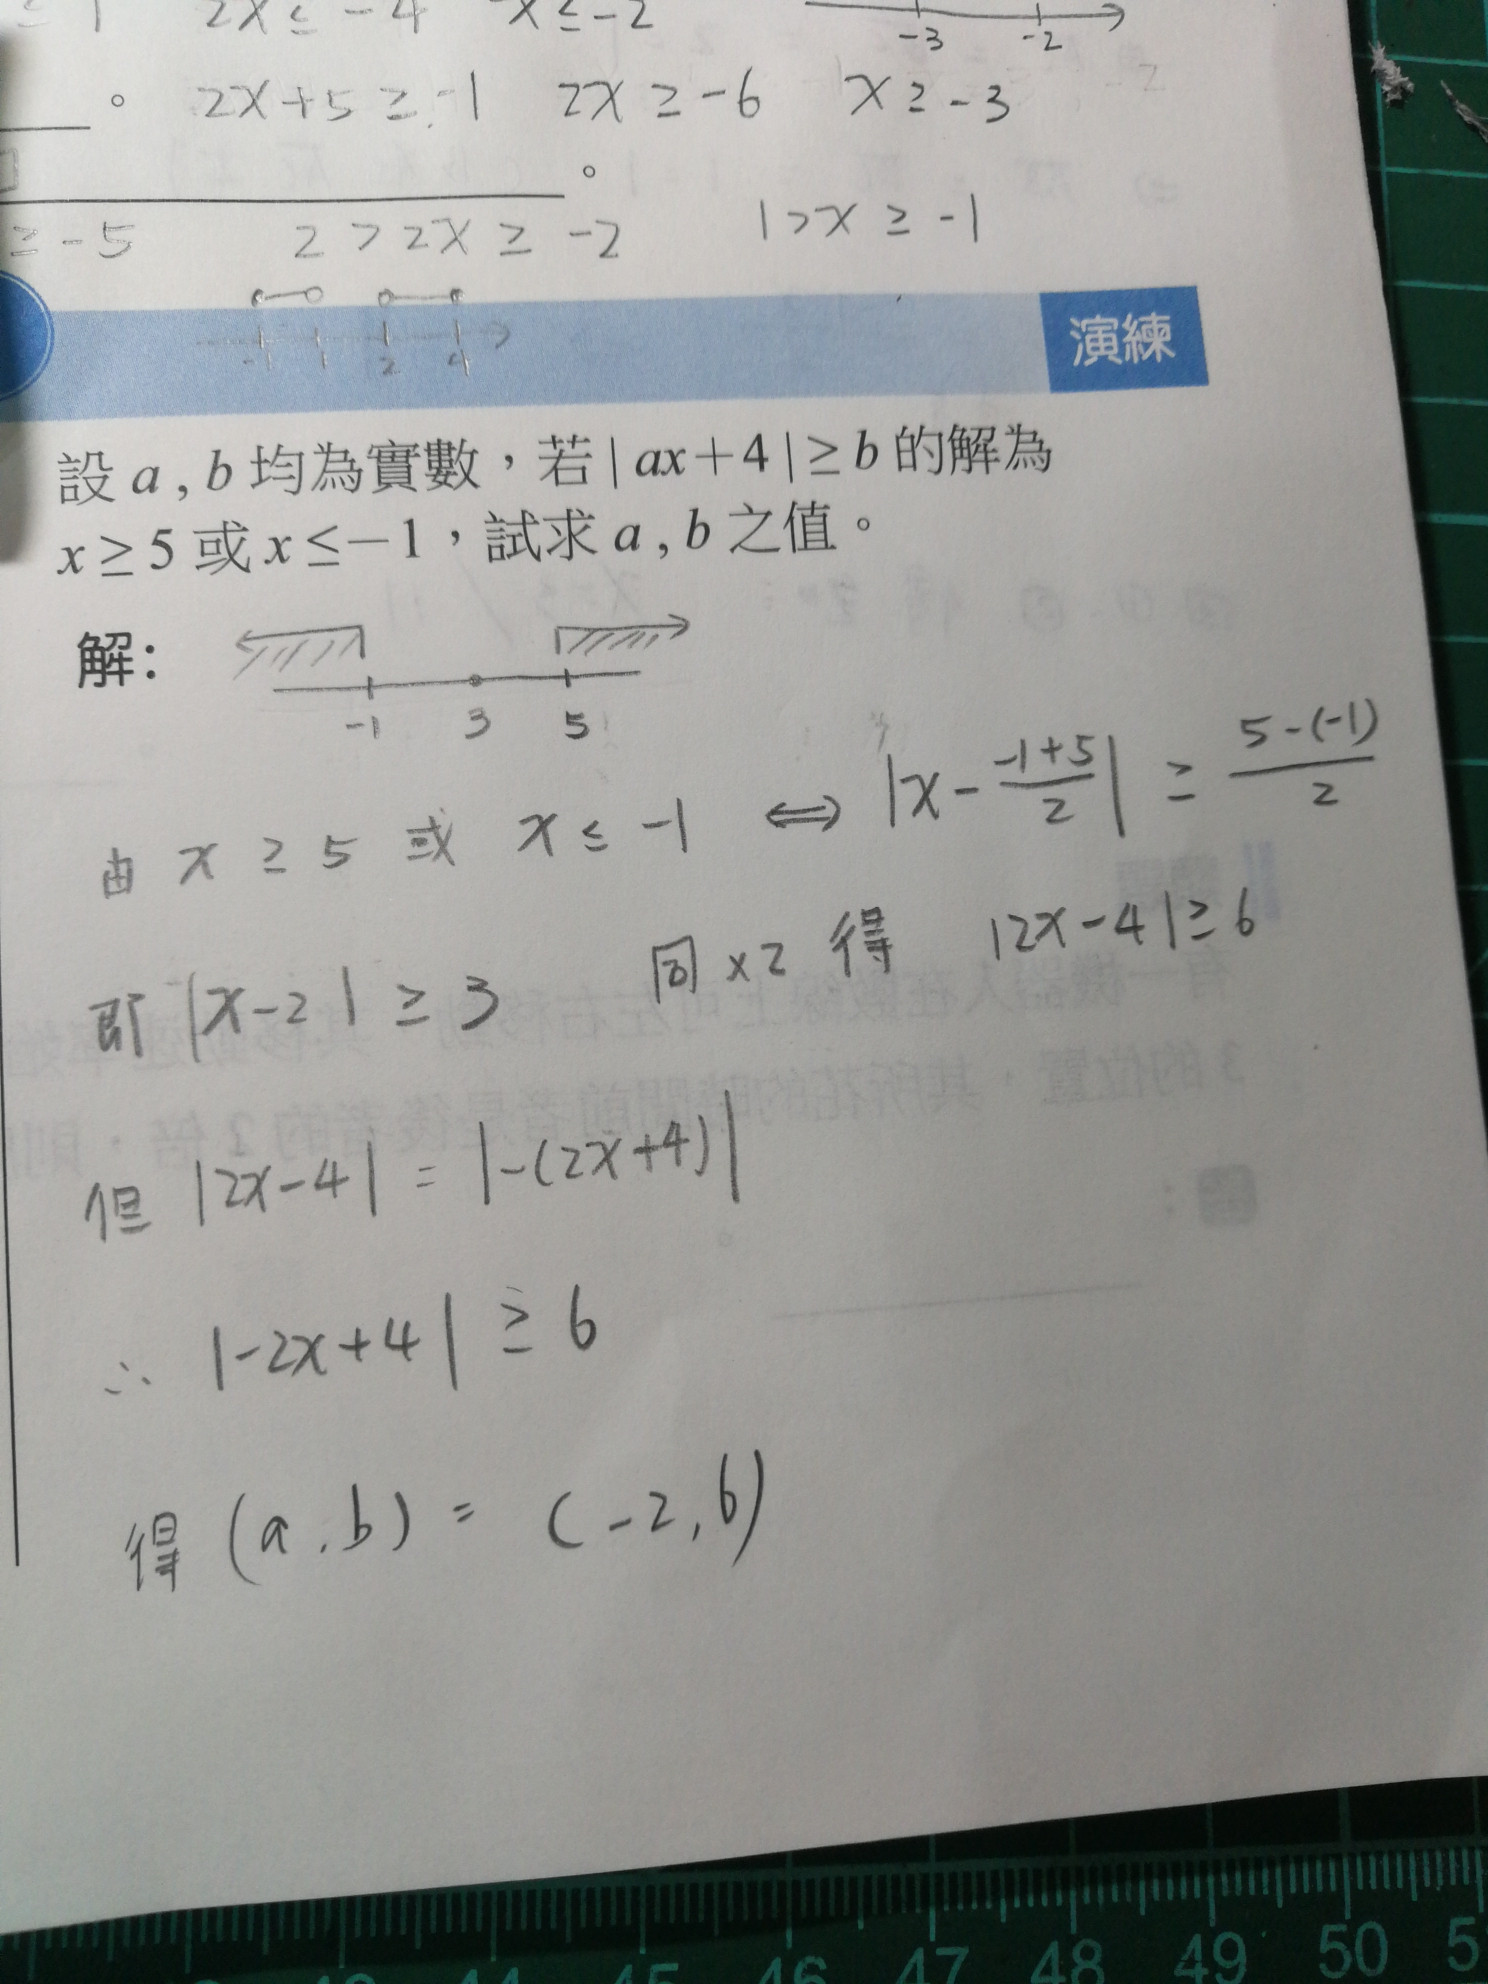 ≤ 1 2x ≤ -4 x ≤ -2
-3 -2
。 2x+5 ≥ -1 2x ≥ -6 x ≥ -3
。
≥ -5 2 > 2x ≥ -2 1 > x ≥ -1
-1 1 2 4
演練
設 a , b 均為實數，若 | ax+4 | ≥ b 的解為
x ≥ 5 或 x ≤ −1，試求 a , b 之值。
解：
-1 3 5
由 x ≥ 5 或 x ≤ -1 ⟺ |x - (-1+5)/2| ≥ (5-(-1))/2
即 |x-2| ≥ 3 同×2 得 |2x-4| ≥ 6
但 |2x-4| = |-(2x+4)|
∴ |-2x+4| ≥ 6
得 (a, b) = (-2, 6)
45 46 47 48 49 50 5